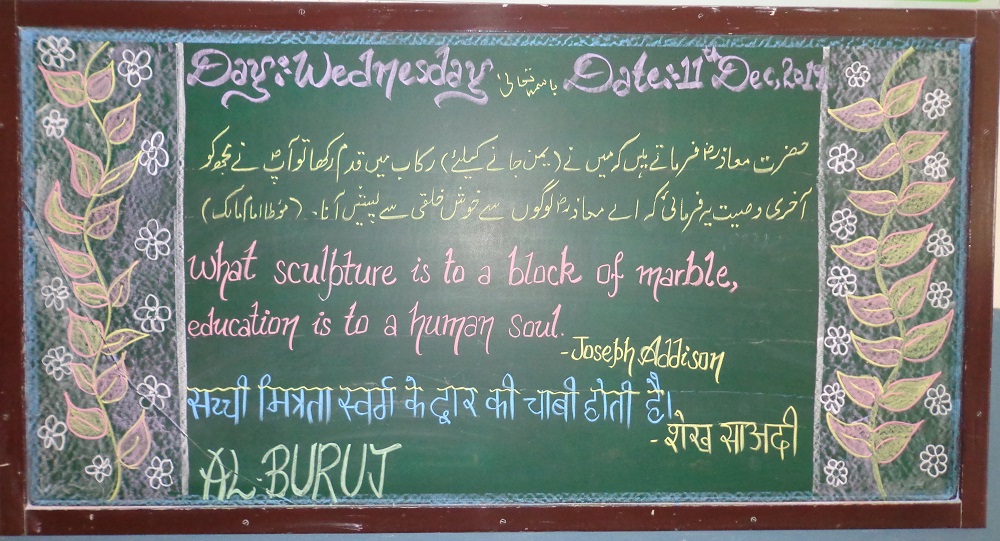 Day:-Wednesday باسمہٖ تعالیٰ Date:-11th Dec, 2019
حضرت معاذؓ فرماتے ہیں کہ میں نے (یمن جانے کیلئے) رکاب میں قدم رکھا تو آپؐ نے مجھ کو
آخری وصیت یہ فرمائی کہ اے معاذؓ لوگوں سے خوش خلقی سے پیش آنا۔ (مؤطا امام مالک)
What sculpture is to a block of marble,
education is to a human soul.
-Joseph Addison
सच्ची मित्रता स्वर्ग के द्वार की चाबी होती है।
-शेख साअदी
AL-BURUJ